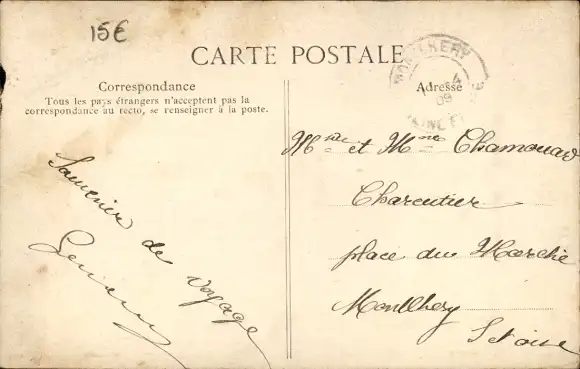 15€
CARTE POSTALE
MONTLHERY
4
09
SEINE ET OISE
Correspondance
Tous les pays étrangers n'acceptent pas la
correspondance au recto, se renseigner à la poste.
Adresse
Souvenir de voyage
et Mme Chamouard
Charcutier
place du Marché
Montlhery
S et oise